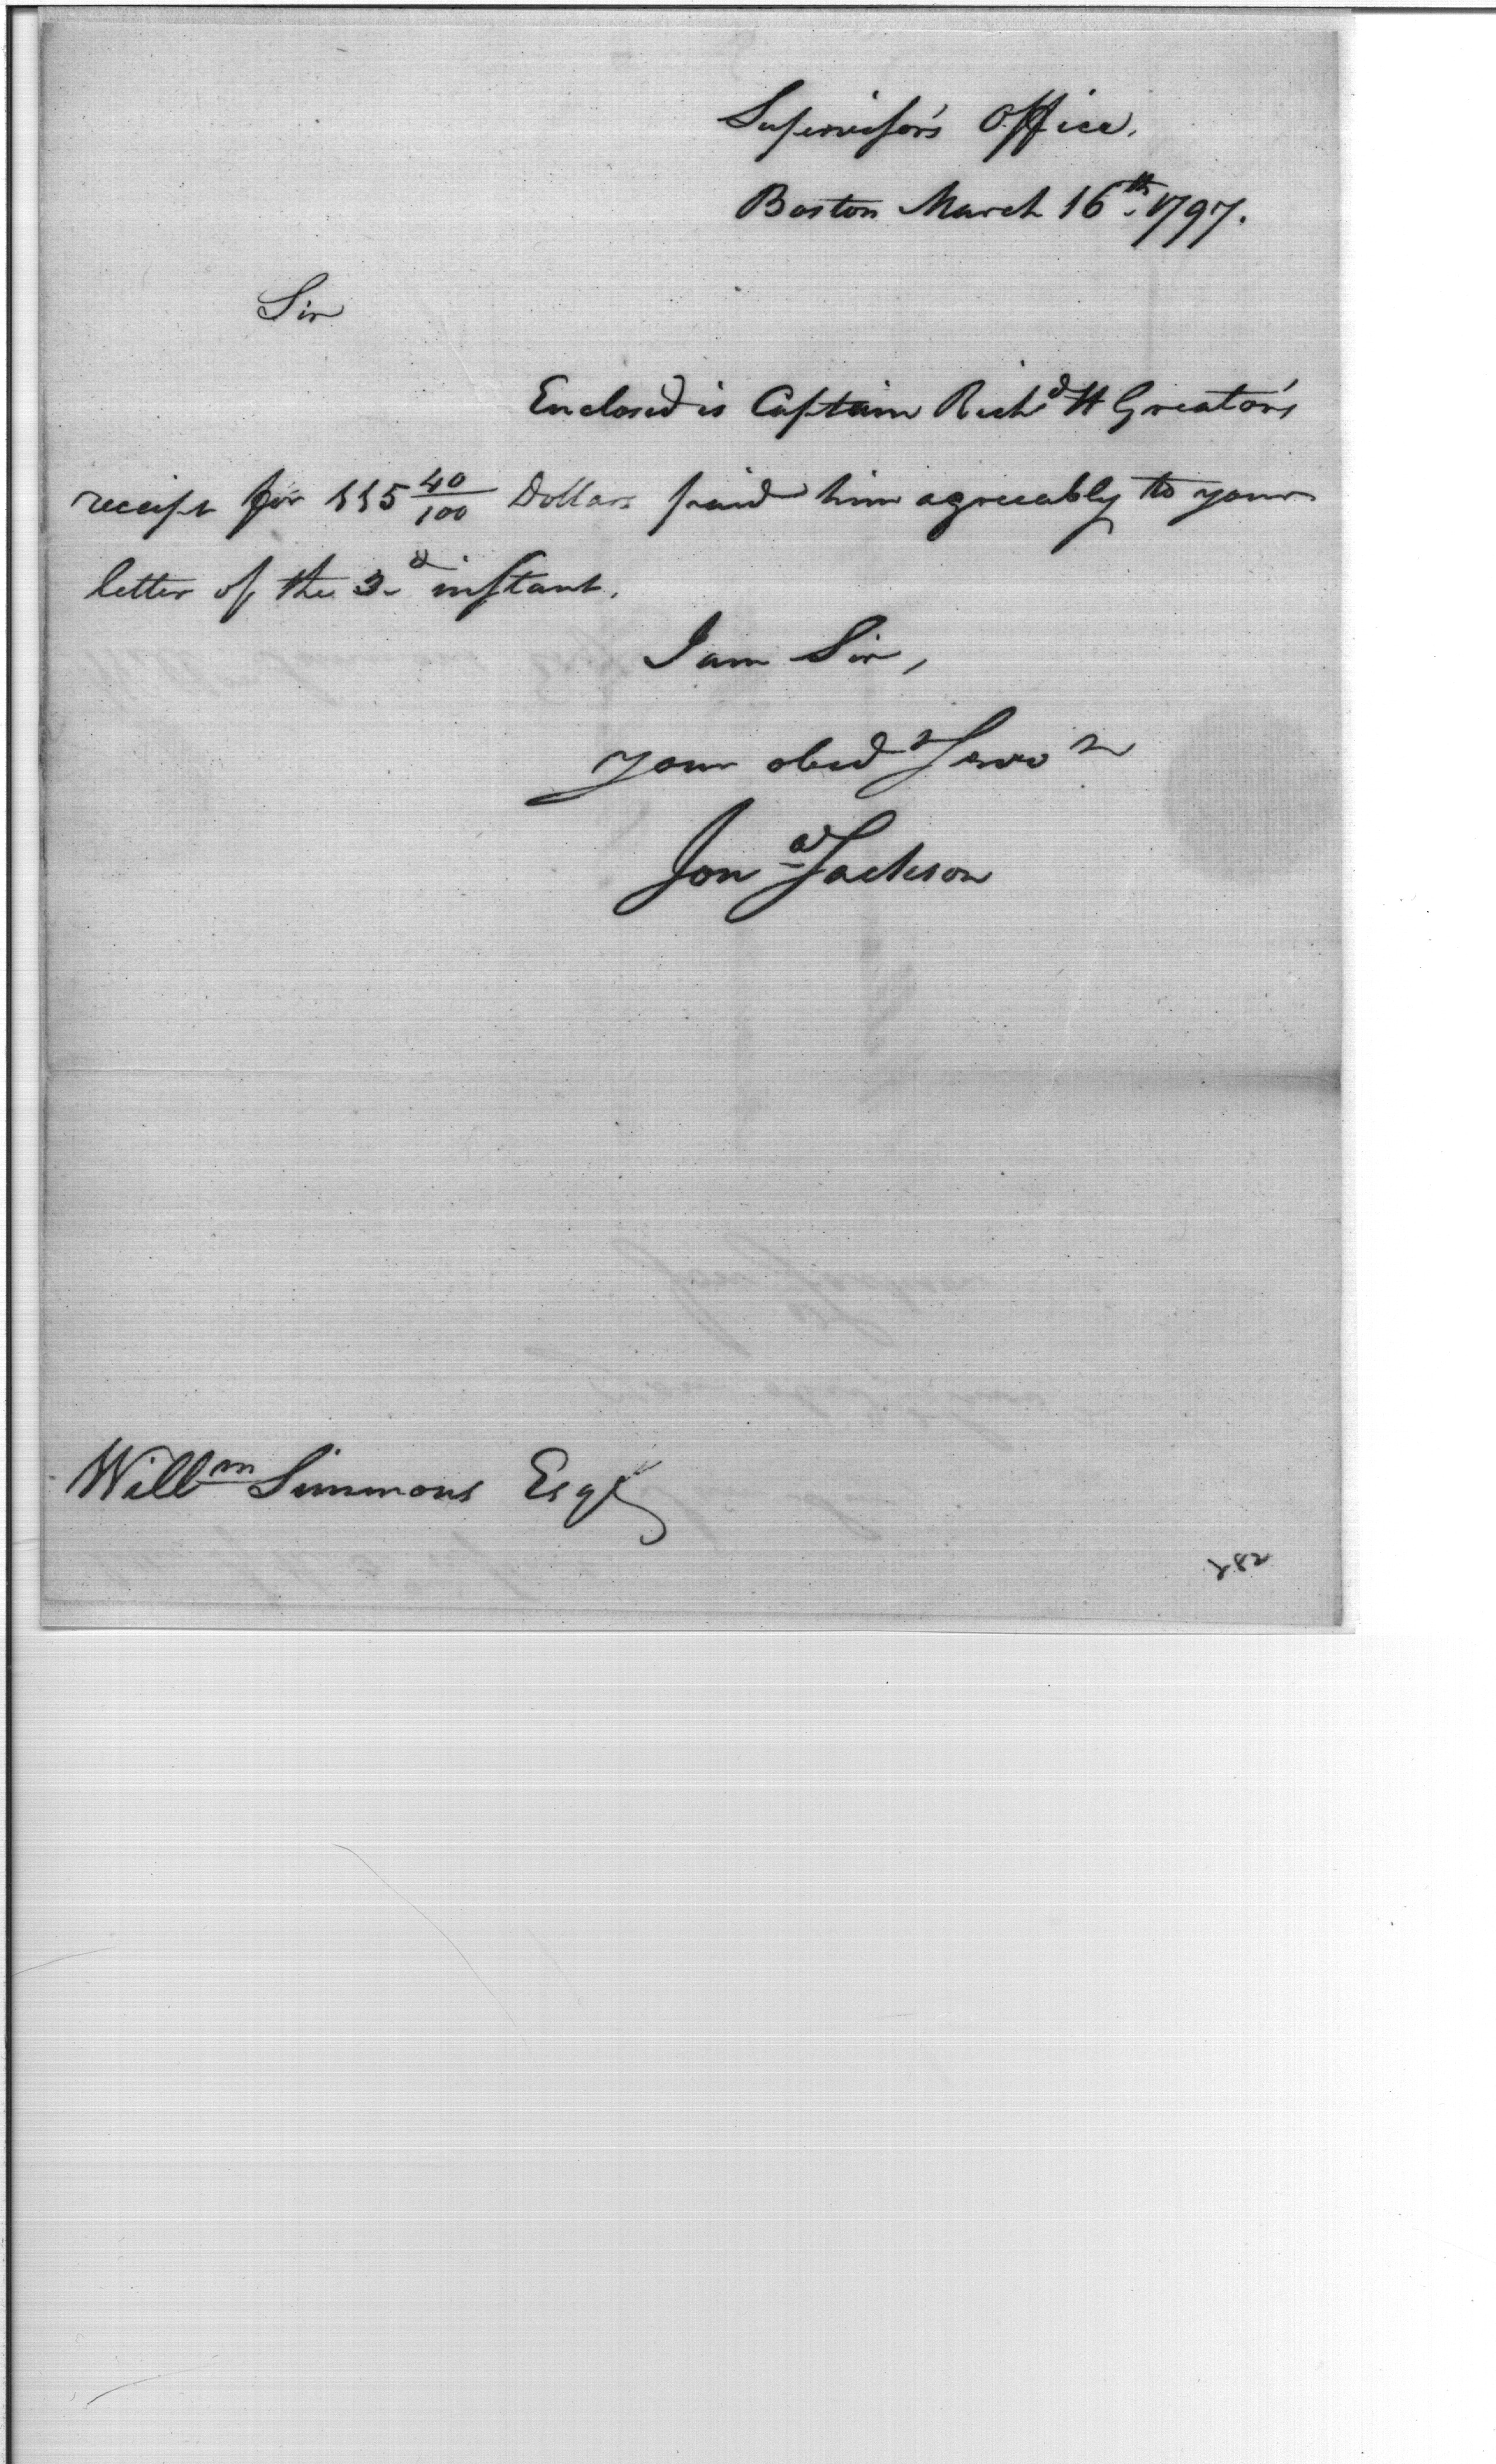 Supervisor's Office.
Boston March 16th. 1797.
Sir
Enclosed is Captain Richd H Greaton's
receipt for 40/100 Dollars paid him agreeably to your
letter of the 3d instant.
I am Sir,
your obedt Servt
Jona Jackson
Willm Simmons Esqr
282